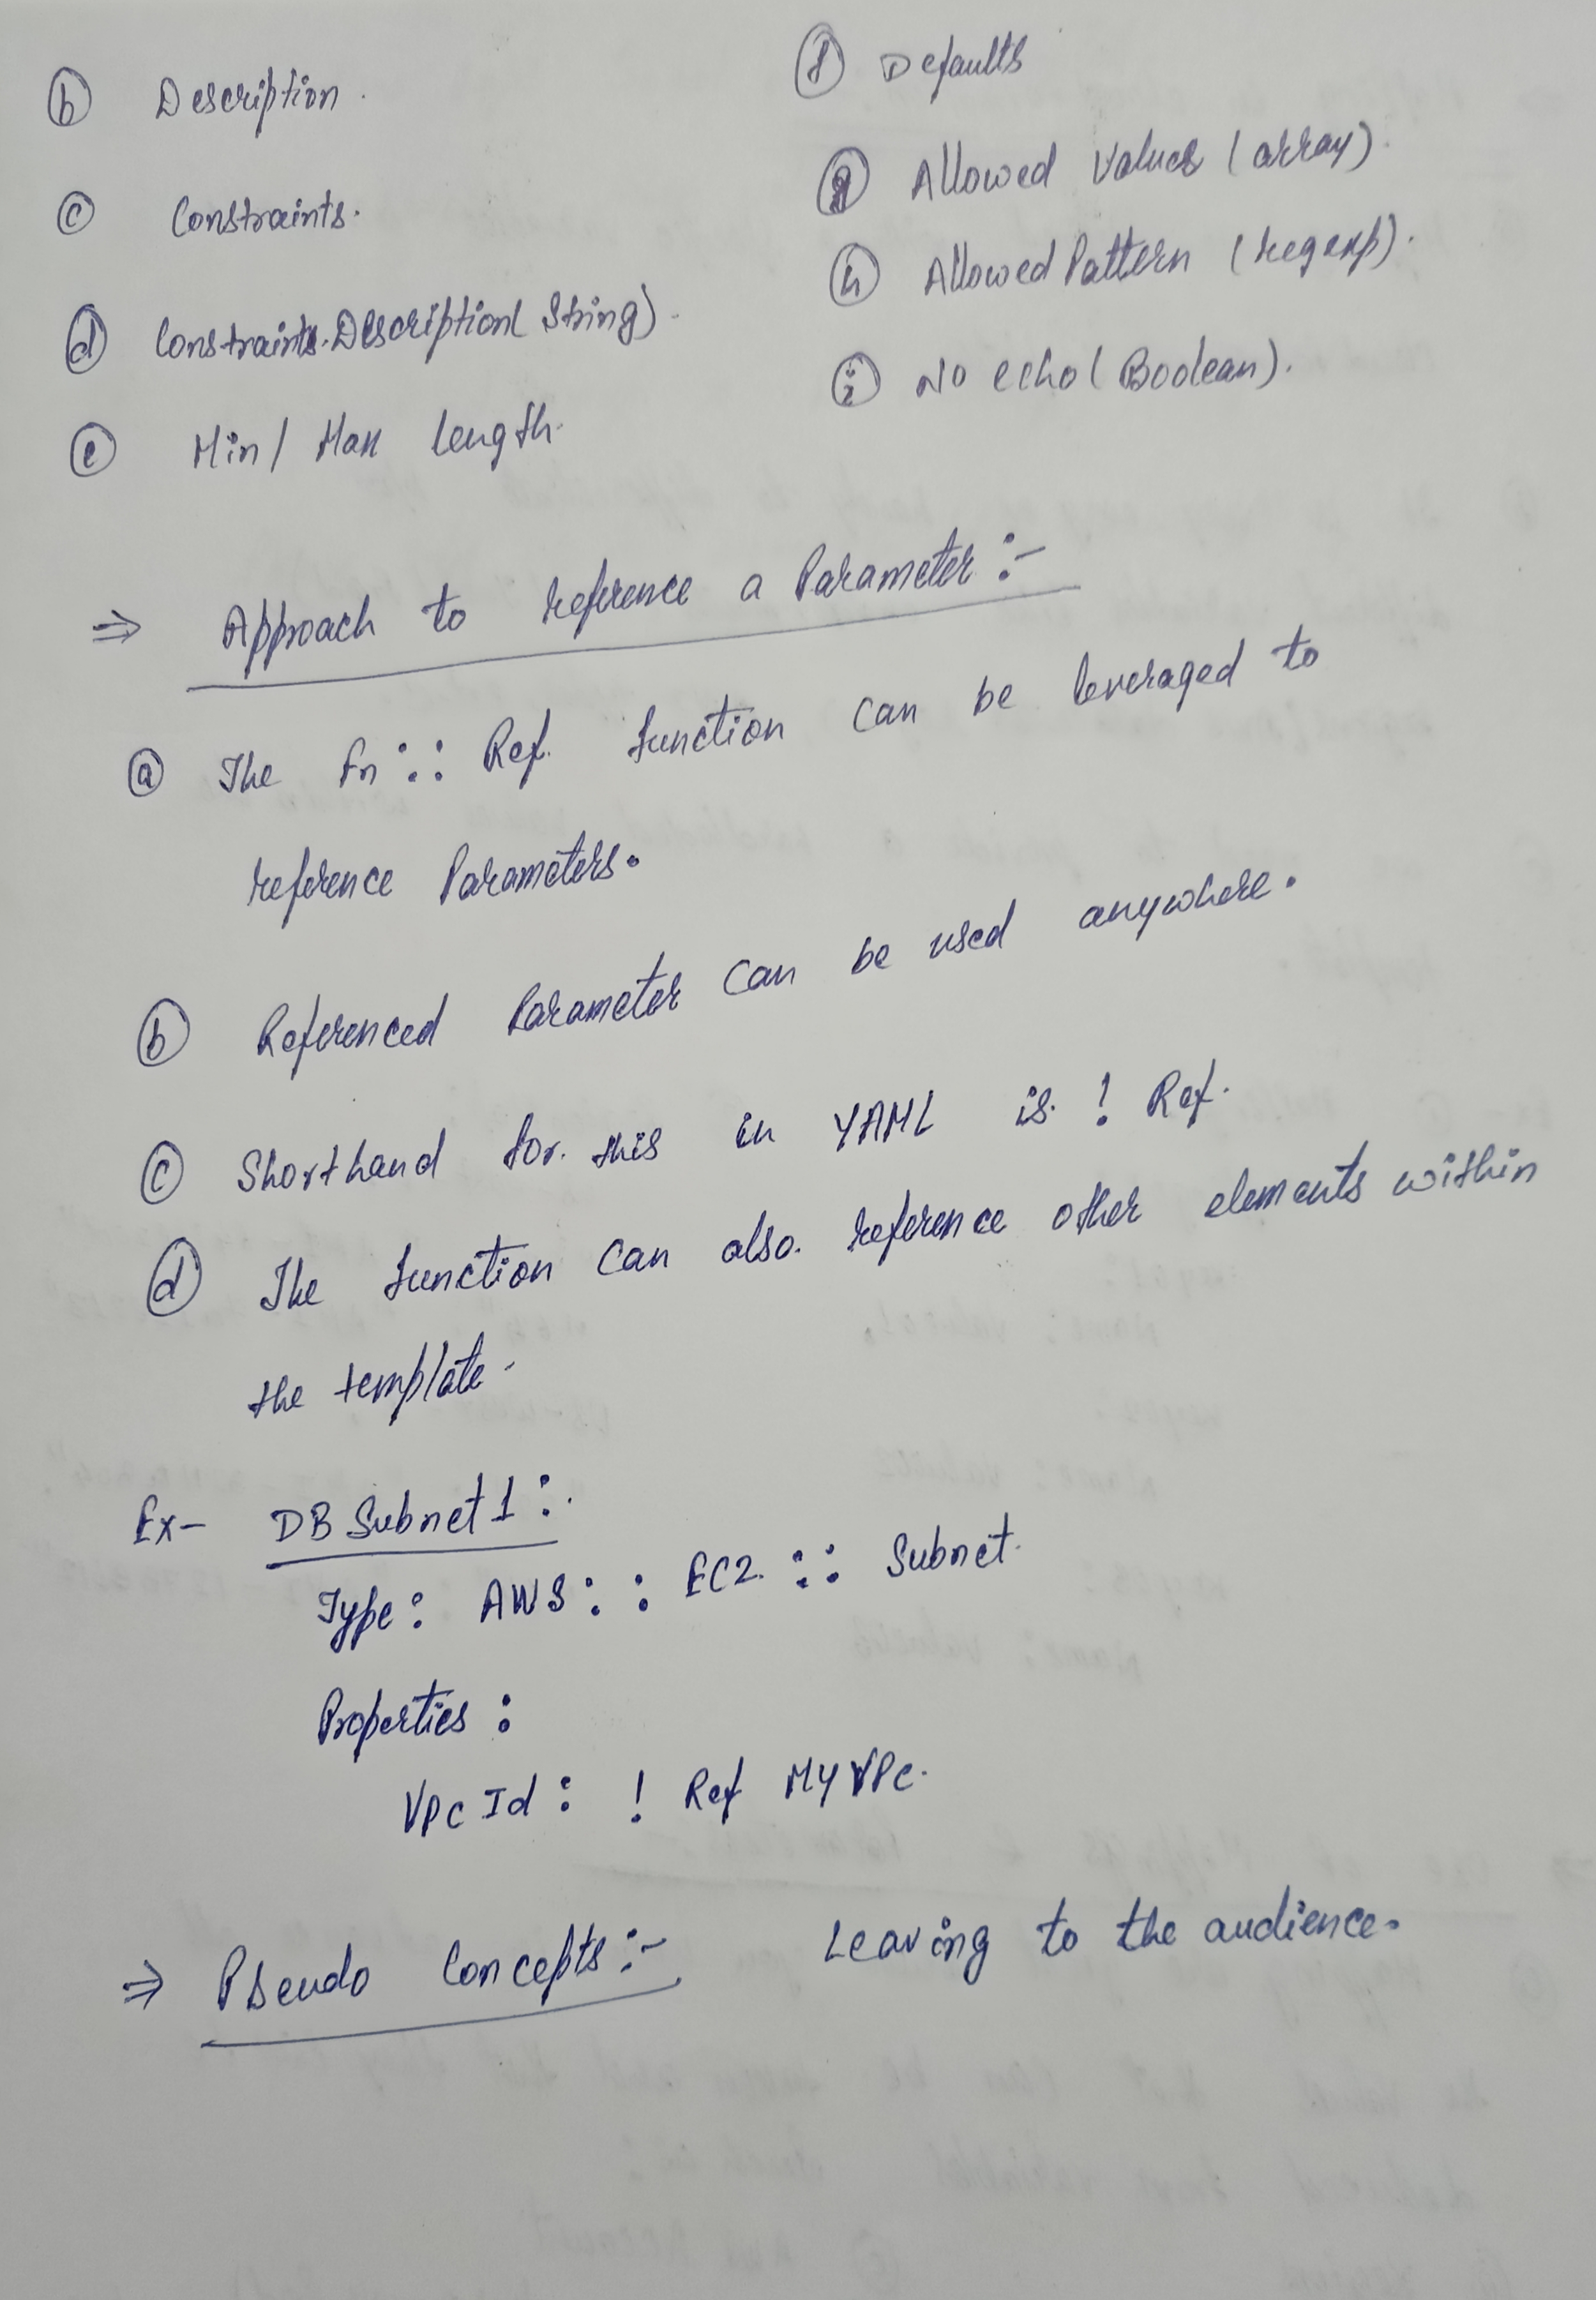 ⓑ Description.
ⓒ Constraints.
ⓓ Constraints.Description(String).
ⓔ Min/ Max length.
ⓕ Defaults
ⓖ Allowed Values (array).
ⓗ Allowed Pattern (regexp).
ⓘ No echo (Boolean).
⇒ Approach to reference a Parameter :-
ⓐ The Fn :: Ref. function can be leveraged to
reference Parameters.
ⓑ Referenced Parameter can be used anywhere.
ⓒ Shorthand for. this in YAML is. ! Ref.
ⓓ The function can also. reference other elements within
the template.
Ex- DB Subnet 1 :.
Type : AWS :: EC2. :: Subnet.
Properties :
Vpc Id : ! Ref MY VPc.
⇒ Pseudo Concepts :- Leaving to the audience.